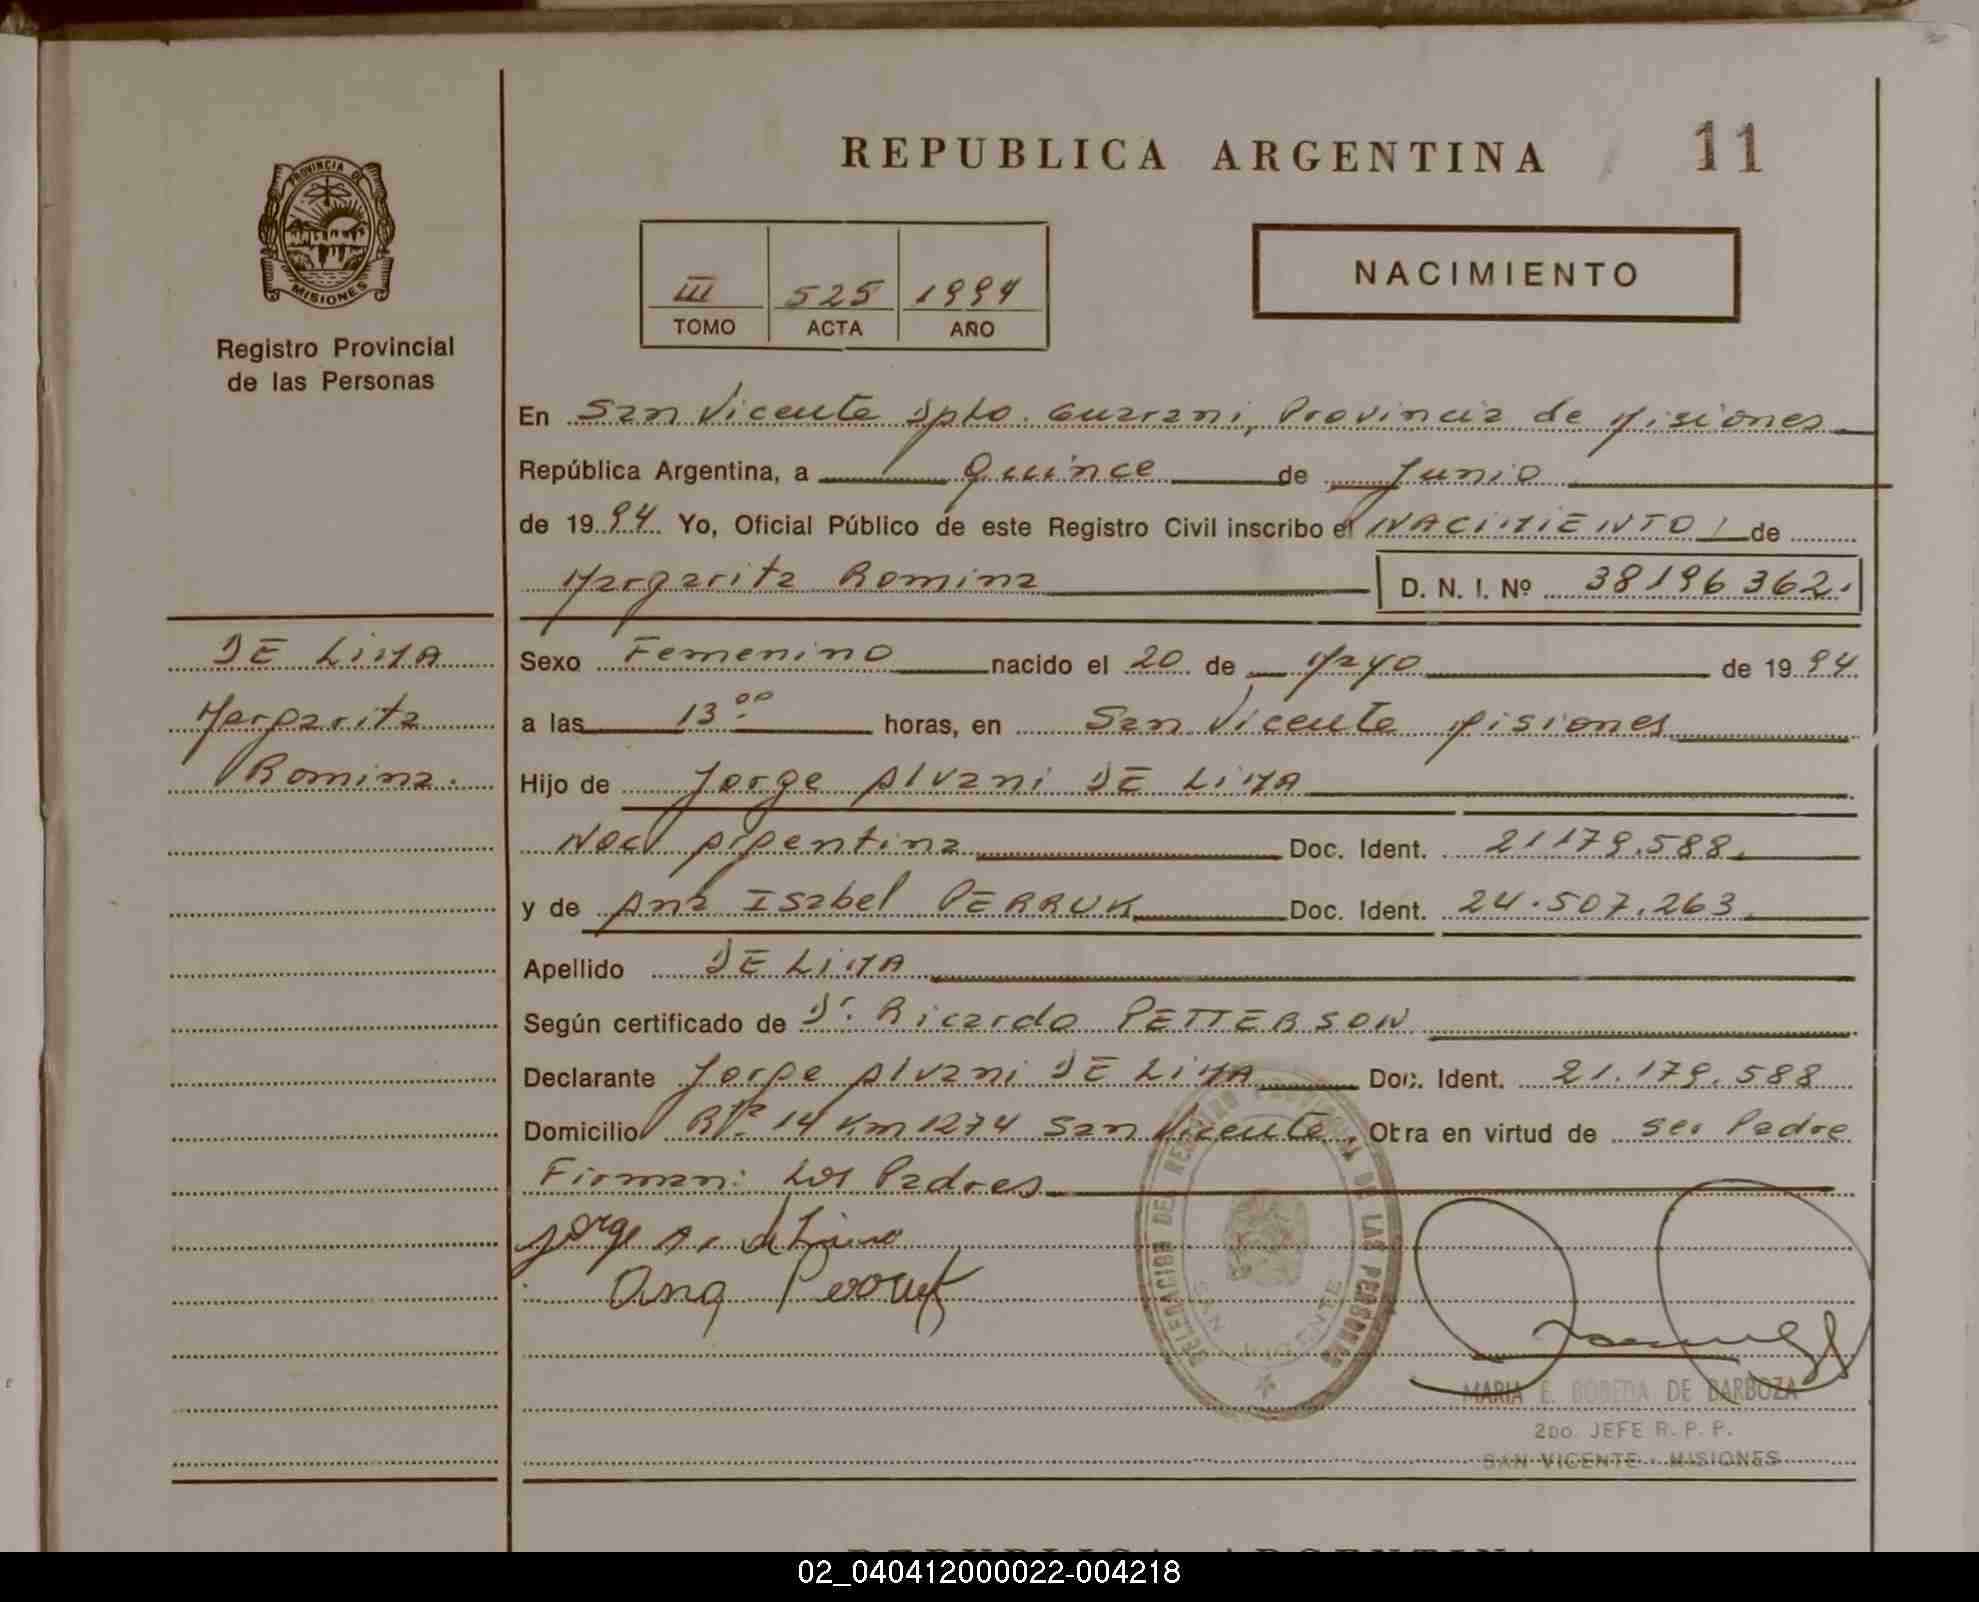 REPUBLICA ARGENTINA 11
PROVINCIA DE
MISIONES
Registro Provincial
de las Personas
III 525 1994
TOMO ACTA AÑO
NACIMIENTO
En San Vicente Dpto. Guarani, Provincia de Misiones
República Argentina, a Quince de Junio
de 1994 Yo, Oficial Público de este Registro Civil inscribo el NACIMIENTO de
Margarita Romina D. N. I. Nº 38196362.
DE LIMA
Margarita
Romina.
Sexo Femenino nacido el 20 de Mayo de 1994
a las 13:00 horas, en San Vicente Misiones
Hijo de Jorge Alvani DE LIMA
Nac Argentina Doc. Ident. 21179.588.
y de Ana Isabel PERRUK Doc. Ident. 24.507.263
Apellido DE LIMA
Según certificado de Dr. Ricardo PETTERSON
Declarante Jorge Alvani DE LIMA Doc. Ident. 21.179.588
Domicilio Rta. 14 Km 1274 San Vicente. Otra en virtud de ser Padre
Firman: Los Padres
Jorge A. de Lima
Ana Perruk
DELEGACION DEL REGISTRO PROVINCIAL DE LAS PERSONAS
SAN VICENTE
MARIA E. BOBEDA DE BARBOZA
2DO. JEFE R. P. P.
SAN VICENTE - MISIONES
REPUBLICA ARGENTINA
02_040412000022-004218